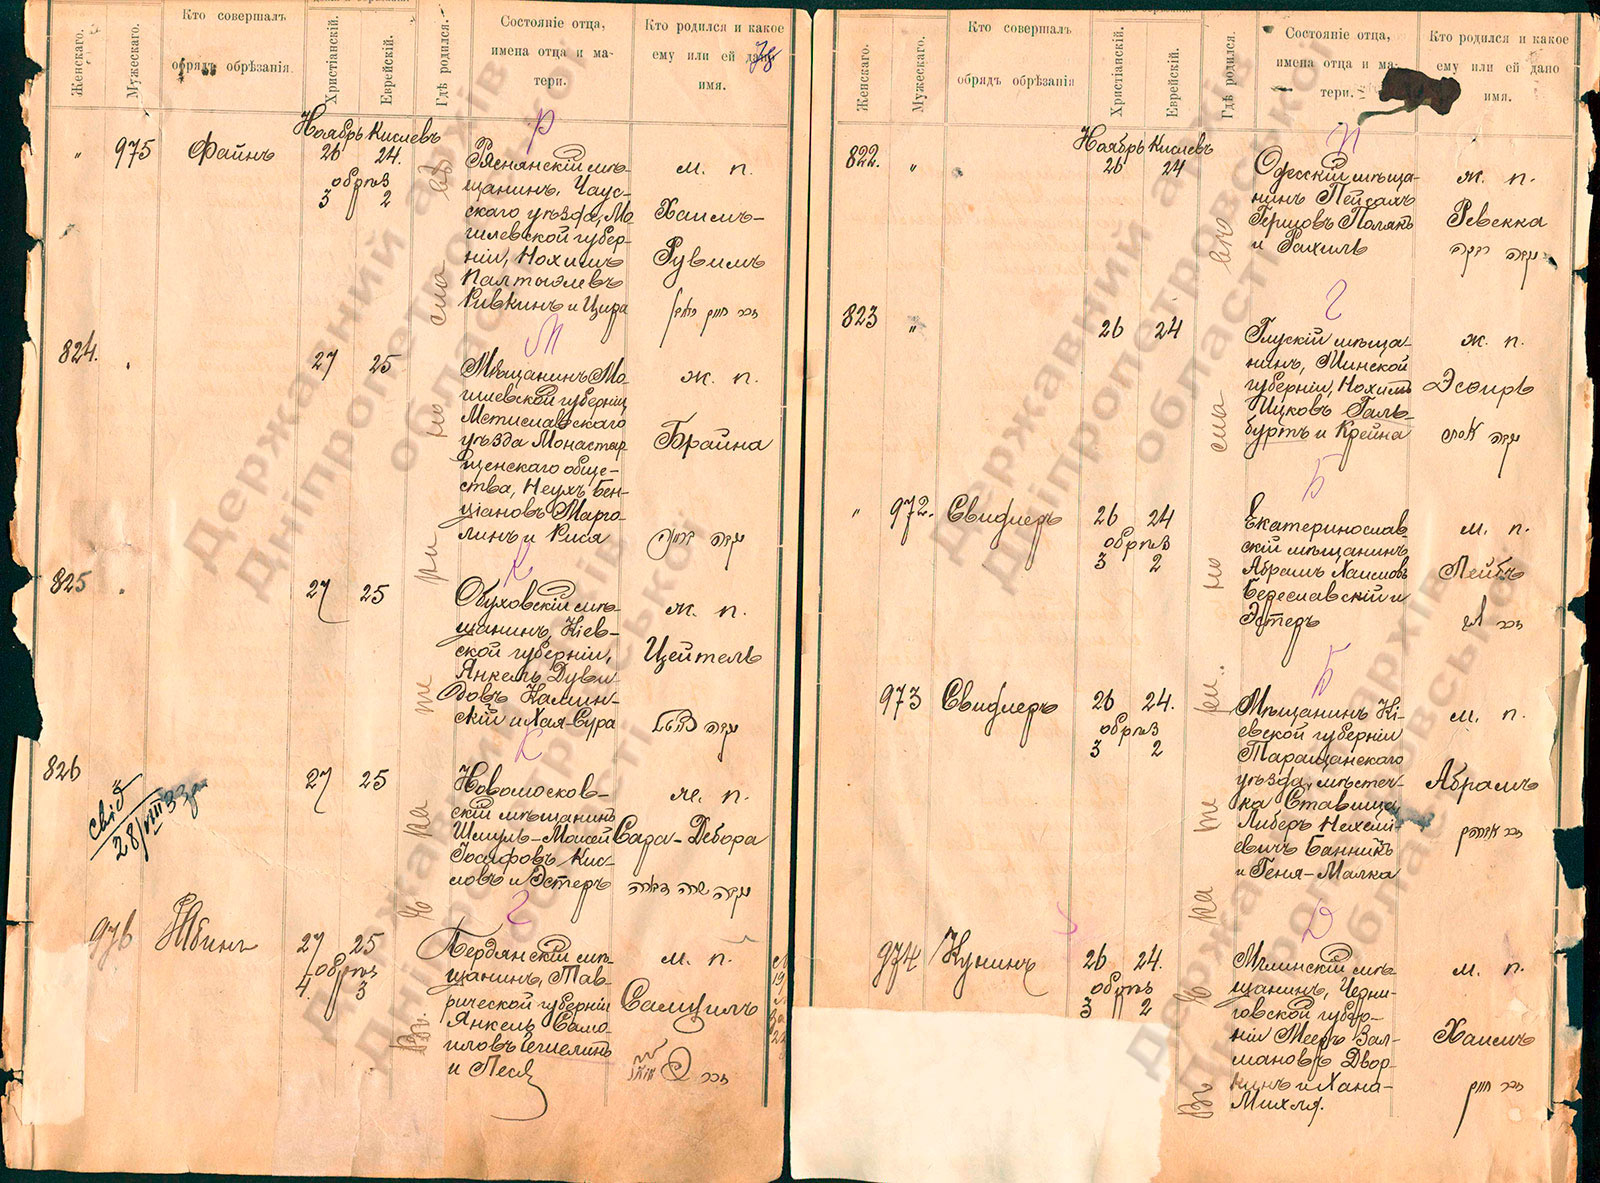 Женскаго.
Мужескаго.
Кто совершалъ
обрядъ обрѣзанія
Христіанскій.
Еврейскій.
Гдѣ родился.
Состояніе отца,
имена отца и ма-
тери.
Кто родился и какое
ему или ей дано
имя.
Ноябрь Кислевъ
Р
" 975 Файнъ 26 24.
обрѣз
3 2
Ряснянскій мѣ-
щанинъ, Чаус-
скаго уѣзда, Мо
гилевской губер-
ніи, Нохимъ
Палтіелевъ
Ривкинъ и Цира
м. п.
Хаимъ-
Рувимъ
М
824. 27 25
Мѣщанинъ Мо-
гилевской губерніи
Мстиславскаго
уѣзда Монастыр
щенскаго обще-
ства, Неухъ Бен-
ціановъ Марго-
линъ и Рися
ж. п.
Брайна
К
825 27 25
Обуховскій мѣ-
щанинъ, Кіев-
ской губерніи,
Янкель Дуви-
довъ Камин-
скій и Хая-Сура
ж. п.
Цейтель
К
826 27 25
Новомосков-
скій мѣщанинъ
Шмуль-Мовсей
Іосифовъ Кис-
ловъ и Эстеръ
ж. п.
Сара-Дебора
נקבה שרה דבורה
свід
28/VIII 33р
976 Юбинъ 27 25
обрѣз
4. 3
Бердянскій мѣ-
щанинъ, Тав-
рической губерніи
Янкель Само-
иловъ
и Песя
м. п.
זכר
Въ Екатеринославѣ
Женскаго.
Мужескаго.
Кто совершалъ
обрядъ обрѣзанія
Христіанскій.
Еврейскій.
Гдѣ родился.
Состояніе отца,
имена отца и ма-
тери.
Кто родился и какое
ему или ей дано
имя.
Ноябрь Кислевъ
П
822. " 26 24
Одесскій мѣща-
нинъ Пейсахъ
Герцовъ Полякъ
и Рахиль
ж. п.
Ревекка
נקבה רבקה
Г
823 " 26 24
Глускій мѣща-
нинъ, Минской
губерніи, Нохимъ
Ицковъ Галь-
буртъ и Крейна
ж. п.
Эсѳирь
נקבה אסתר
Б
" 972. Свидлеръ 26 24
обрѣз
3 2
Екатеринослав
скій мѣщанинъ
Абрамъ Хаимовъ
Береславскій и
Эстеръ
м. п.
Лейбъ
זכר
Б
973 Свидлеръ 26 24.
обрѣз
3 2
Мѣщанинъ Кі-
евской губерніи
Таращанскаго
уѣзда, мѣстеч-
ка Ставища,
Либеръ Нехемі-
евичъ Банникъ
и Геня-Малка
м. п.
Абрамъ
זכר אברהם
Д
974 Кунинъ 26 24.
обрѣз
3 2
Мглинскій мѣ-
щанинъ, Черни-
говской губер-
ніи Мееръ Зал-
мановъ Двор-
кинъ и Хана-
Михля.
м. п.
Хаимъ
זכר חיים
Въ Екатеринославѣ
Державний архів
Дніпропетровської
області